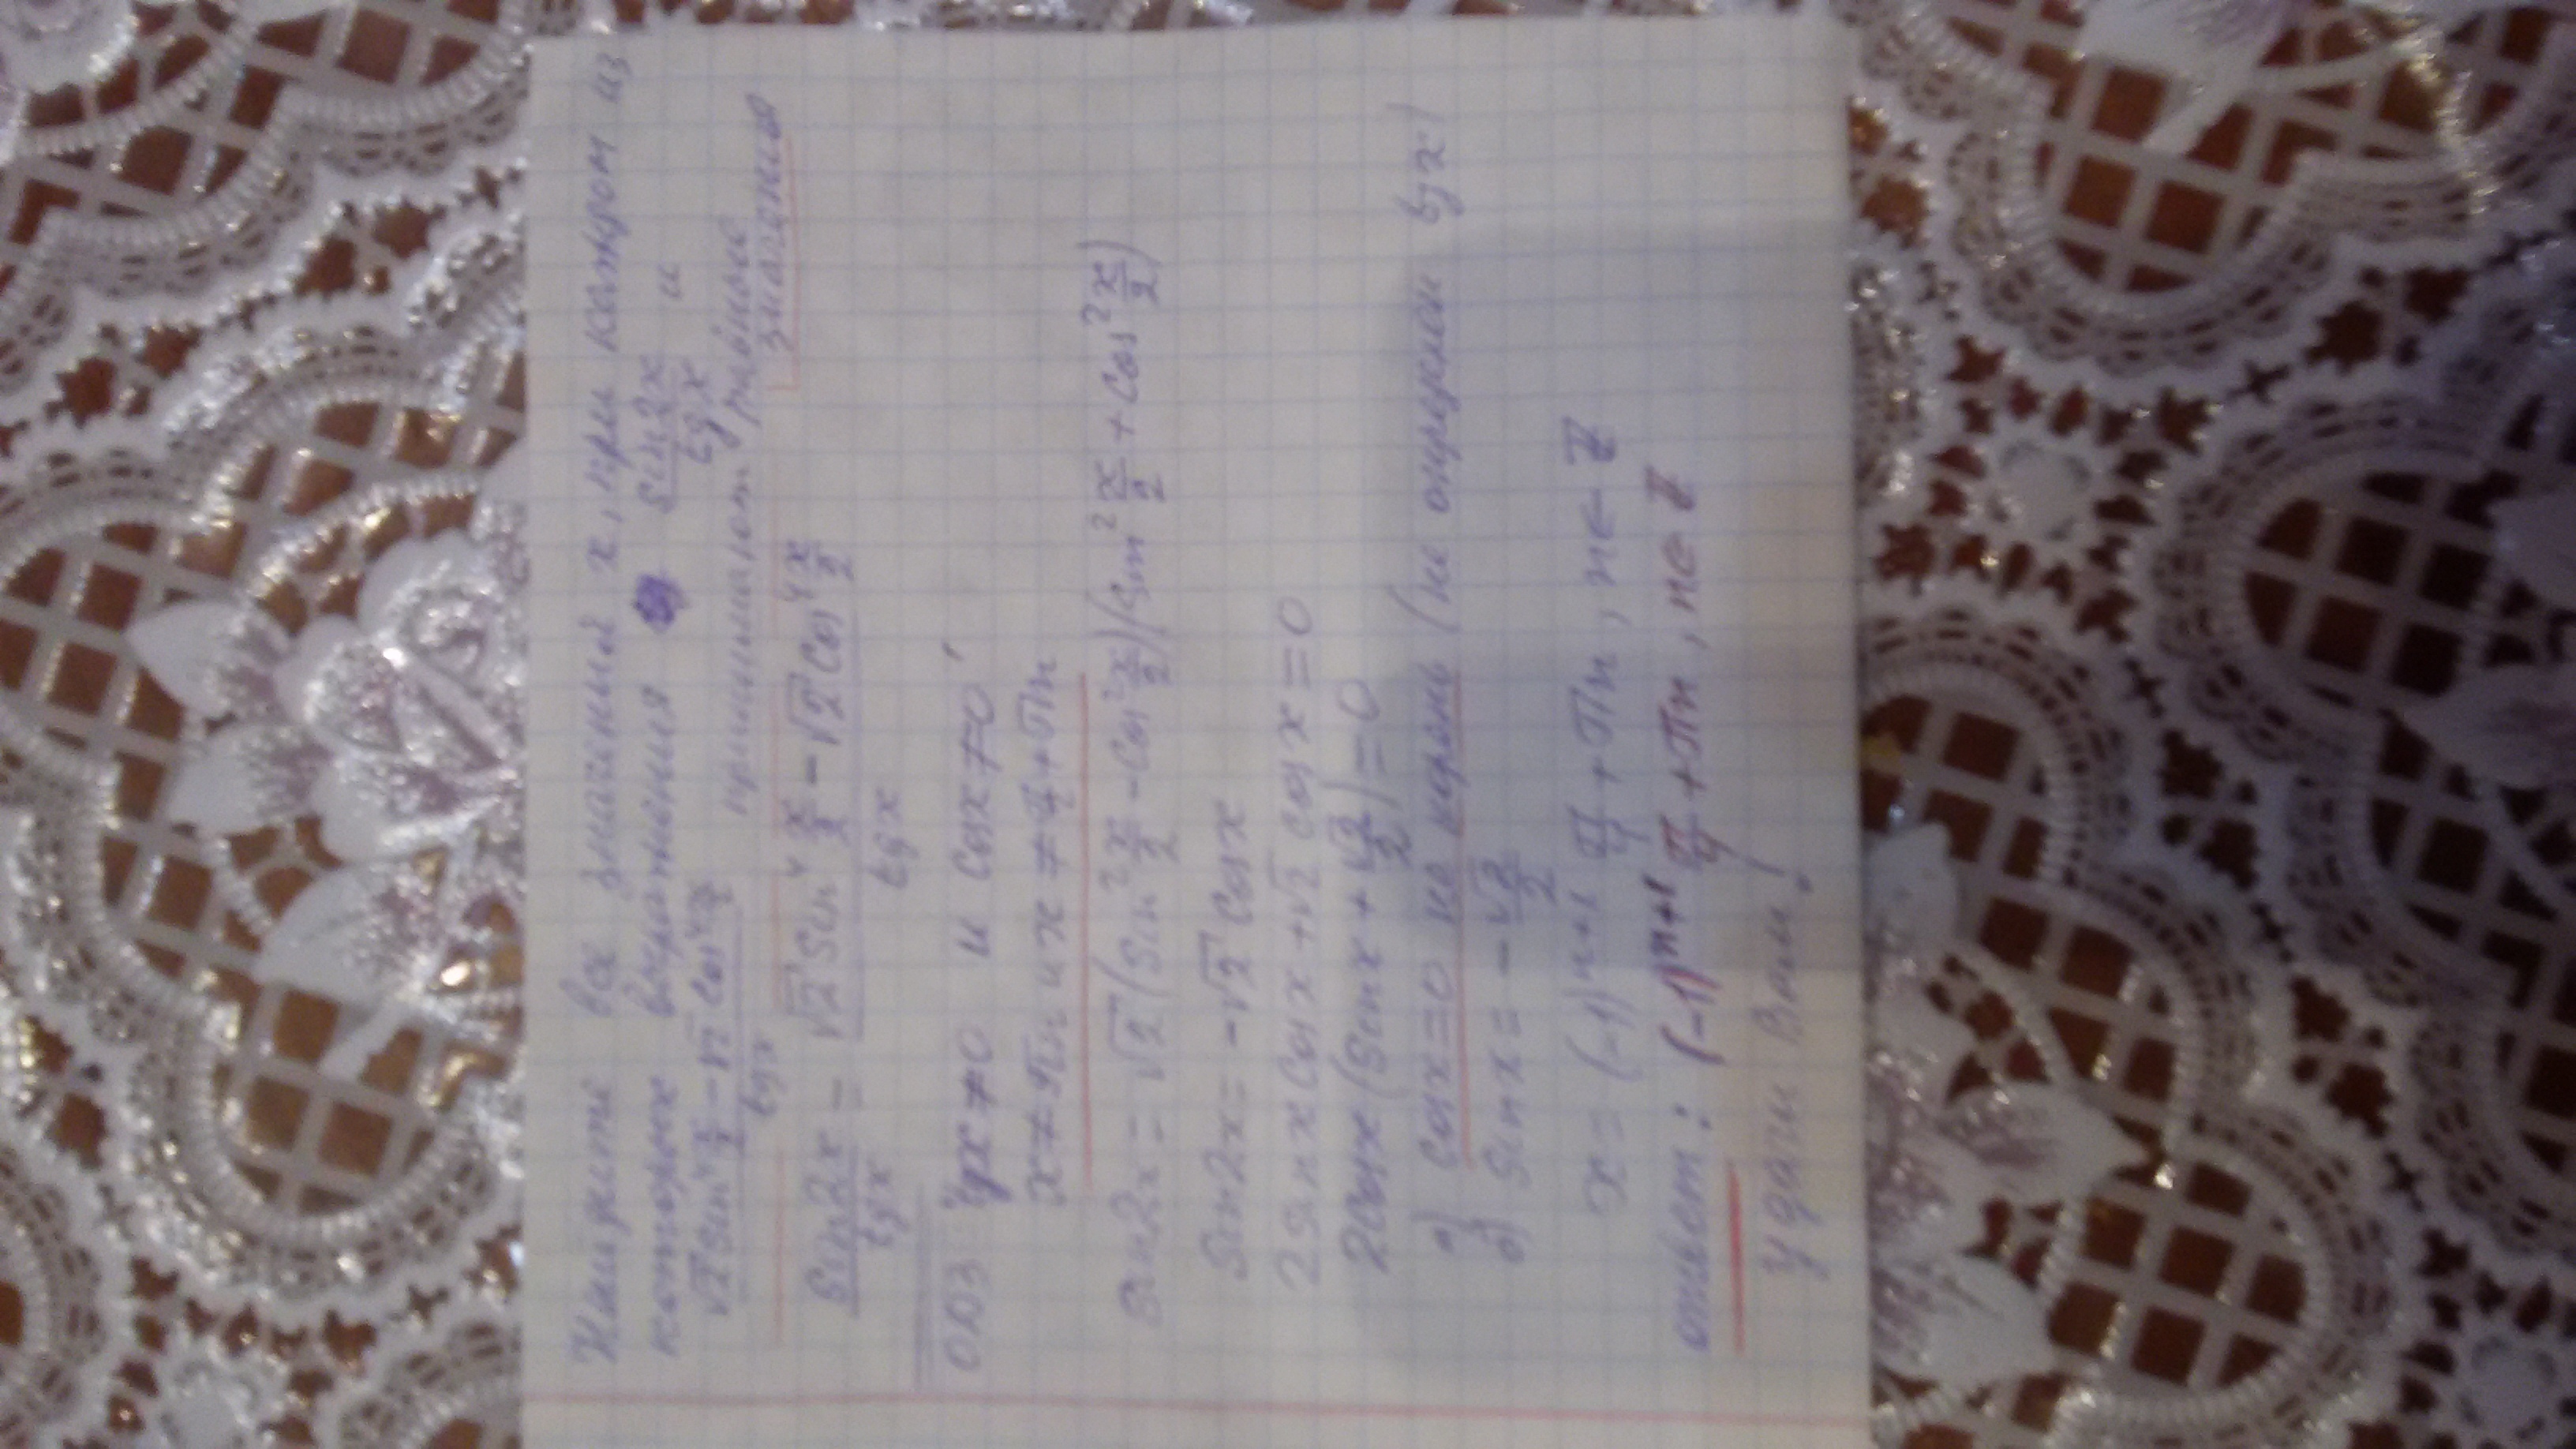 Найдите все значения x, при котором из
которых выражения sin2x/tgx и
√2 sin⁴ x/2 - √2 cos⁴ x/2 / tgx принимают равные
значения
sin2x/tgx = √2 sin⁴ x/2 - √2 cos⁴ x/2 / tgx
ОДЗ tgx ≠ 0 и cosx ≠ 0
x ≠ πn и x ≠ π/2 + πn
sin2x = √2 (sin² x/2 - cos² x/2)(sin² x/2 + cos² x/2)
sin2x = -√2 cosx
2sinxcosx + √2 cosx = 0
2cosx(sinx + √2/2) = 0
a) cosx = 0 не корень (не определён tgx)
б) sinx = -√2/2
x = (-1)ⁿ⁺¹ π/4 + πn, n∈Z
ответ: (-1)ⁿ⁺¹ π/4 + πn, n∈Z
Удачи Вам!